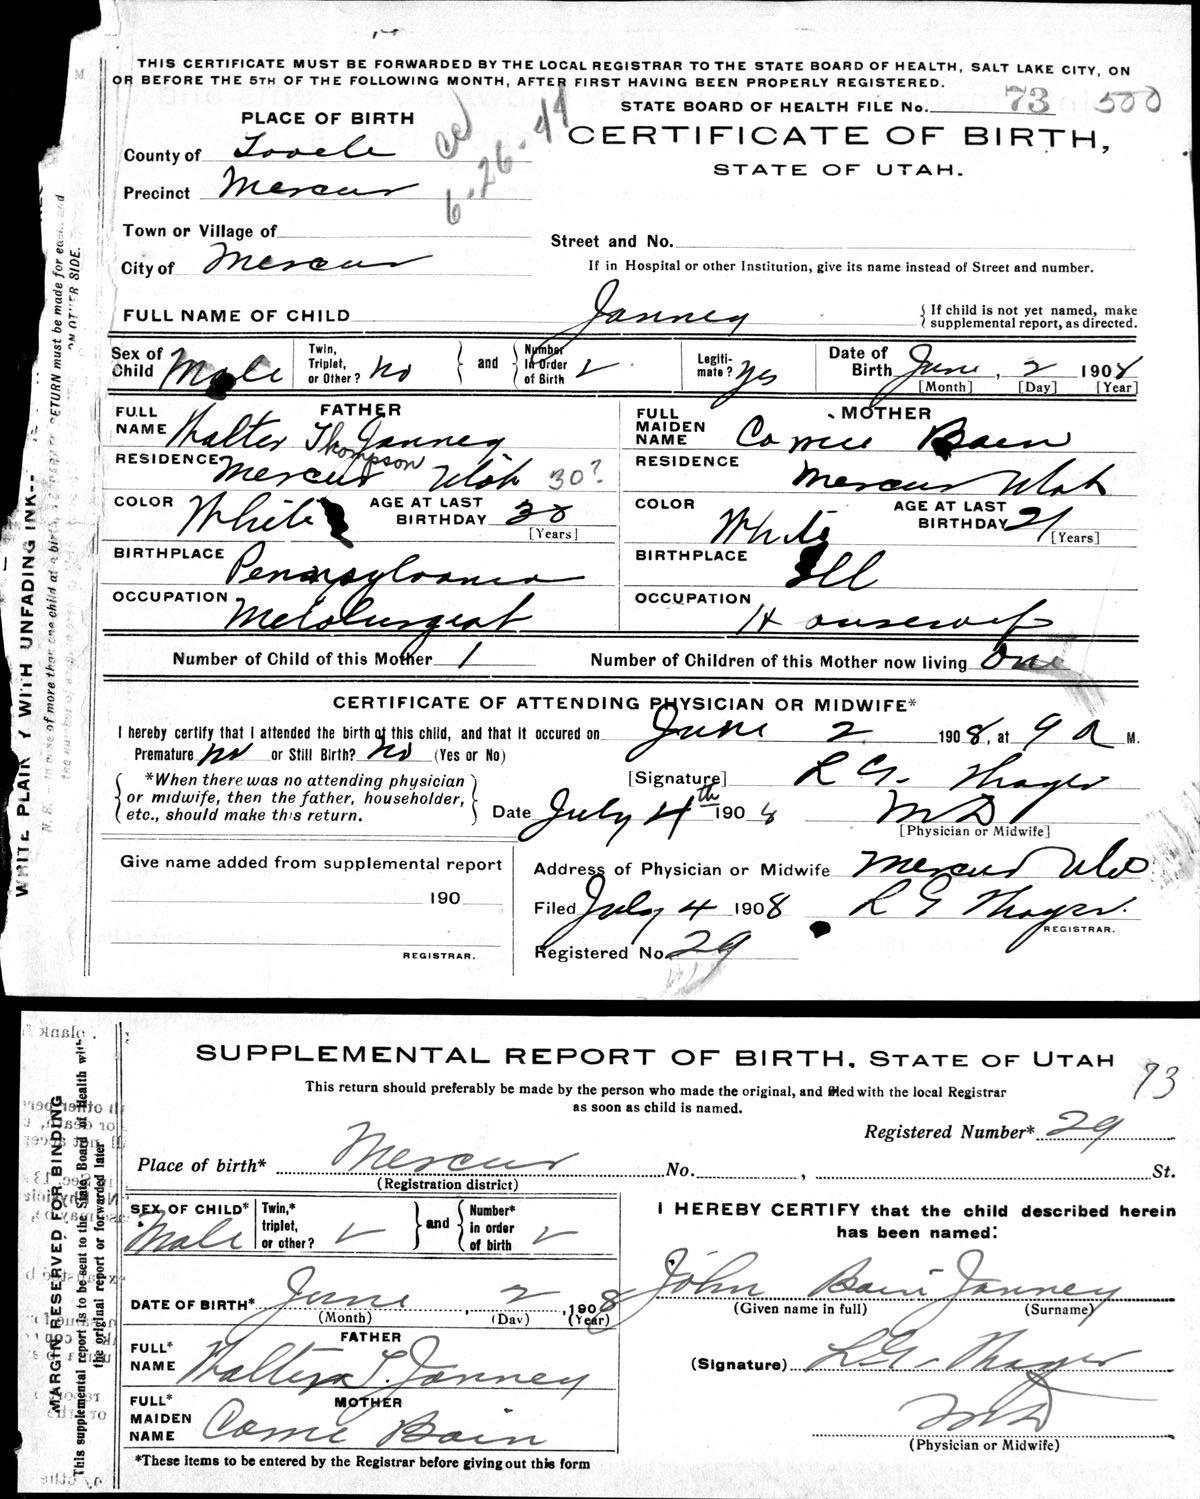 THIS CERTIFICATE MUST BE FORWARDED BY THE LOCAL REGISTRAR TO THE STATE BOARD OF HEALTH, SALT LAKE CITY, ON
OR BEFORE THE 5TH OF THE FOLLOWING MONTH, AFTER FIRST HAVING BEEN PROPERLY REGISTERED.
STATE BOARD OF HEALTH FILE No. 73 500
PLACE OF BIRTH
6-26-41
CERTIFICATE OF BIRTH,
STATE OF UTAH.
County of Tooele
Precinct Mercur
Town or Village of
Street and No.
City of Mercur
If in Hospital or other Institution, give its name instead of Street and number.
FULL NAME OF CHILD Janney
{If child is not yet named, make
supplemental report, as directed.
Sex of Child Male
Twin, Triplet, or Other? No
and
Number in Order of Birth
Legiti- mate? yes
Date of Birth June, 2 1908
[Month] [Day] [Year]
FATHER
FULL NAME Walter Thompson Janney
MOTHER
FULL MAIDEN NAME Bain
RESIDENCE Mercur Utah 30?
RESIDENCE Mercur Utah
COLOR White
AGE AT LAST BIRTHDAY 30
[Years]
COLOR White
AGE AT LAST BIRTHDAY 21
[Years]
BIRTHPLACE Pennsylvania
BIRTHPLACE Ill
OCCUPATION Metalurgest
OCCUPATION Housewife
Number of Child of this Mother 1
Number of Children of this Mother now living One
CERTIFICATE OF ATTENDING PHYSICIAN OR MIDWIFE*
I hereby certify that I attended the birth of this child, and that it occured on June 2 1908, at 9 A M.
Premature No or Still Birth? No (Yes or No)
*When there was no attending physician
or midwife, then the father, householder,
etc., should make this return.
[Signature] L G. Thayer
Date July 4th 1908 MD
[Physician or Midwife]
Give name added from supplemental report
190
REGISTRAR.
Address of Physician or Midwife Mercur Utah
Filed July 4 1908 L G Thayer.
REGISTRAR.
Registered No. 29
WRITE PLAINLY WITH UNFADING INK
SUPPLEMENTAL REPORT OF BIRTH, STATE OF UTAH
73
This return should preferably be made by the person who made the original, and filed with the local Registrar
as soon as child is named.
Registered Number* 29
Place of birth* Mercur No. , St.
(Registration district)
SEX OF CHILD* Male
Twin,* triplet, or other?
and
Number* in order of birth
I HEREBY CERTIFY that the child described herein
has been named:
DATE OF BIRTH* June, 2, 1908
(Month) (Day) (Year)
John Bain Janney
(Given name in full) (Surname)
FATHER
FULL* NAME Walter T. Janney
(Signature) L G. Thayer
MOTHER
FULL* MAIDEN NAME Bain
MD
(Physician or Midwife)
*These items to be entered by the Registrar before giving out this form
MARGIN RESERVED FOR BINDING
This supplemental report is to be sent to the State Board of Health with
the original report or forwarded later